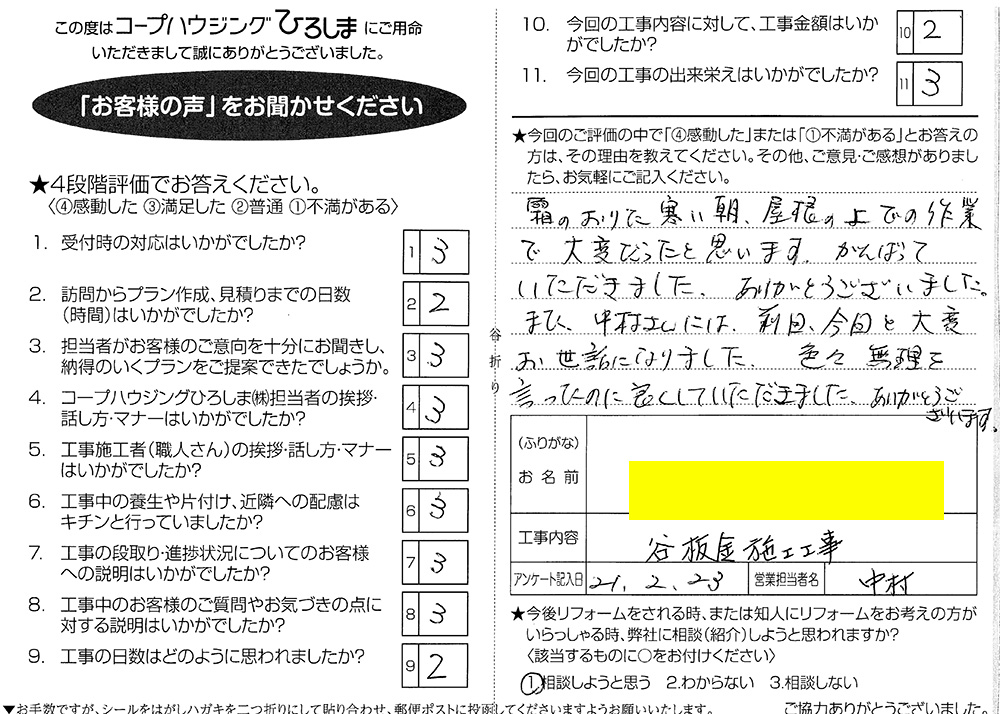 この度はコープハウジングひろしまにご用命
いただきまして誠にありがとうございました。
「お客様の声」をお聞かせください
★4段階評価でお答えください。
〈④感動した ③満足した ②普通 ①不満がある〉
1. 受付時の対応はいかがでしたか?
1 3
2. 訪問からプラン作成、見積りまでの日数
(時間)はいかがでしたか?
2 2
3. 担当者がお客様のご意向を十分にお聞きし、
納得のいくプランをご提案できたでしょうか。
3 3
4. コープハウジングひろしま㈱担当者の挨拶・
話し方・マナーはいかがでしたか?
4 3
5. 工事施工者(職人さん)の挨拶・話し方・マナー
はいかがでしたか?
5 3
6. 工事中の養生や片付け、近隣への配慮は
キチンと行っていましたか?
6 3
7. 工事の段取り・進捗状況についてのお客様
への説明はいかがでしたか?
7 3
8. 工事中のお客様のご質問やお気づきの点に
対する説明はいかがでしたか?
8 3
9. 工事の日数はどのように思われましたか?
9 2
▼お手数ですが、シールをはがしハガキを二つ折りにして貼り合わせ、郵便ポストに投函してくださいますようお願いいたします。
谷折り
10. 今回の工事内容に対して、工事金額はいか
がでしたか?
10 2
11. 今回の工事の出来栄えはいかがでしたか?
11 3
★今回のご評価の中で「④感動した」または「①不満がある」とお答えの
方は、その理由を教えてください。その他、ご意見・ご感想がありまし
たら、お気軽にご記入ください。
霜のおりた寒い朝、屋根の上での作業
で大変だったと思います。がんばって
いただきました。ありがとうございました。
また、中村さんには、前回、今回と大変
お世話になりました。色々無理を
言ったのに良くしていただきました。ありがとうご
ざいます。
(ふりがな)
お名前
工事内容 谷板金施工工事
アンケート記入日 21.2.23 営業担当者名 中村
★今後リフォームをされる時、または知人にリフォームをお考えの方が
いらっしゃる時、弊社に相談(紹介)しようと思われますか?
〈該当するものに○をお付けください〉
1.相談しようと思う 2.わからない 3.相談しない
ご協力ありがとうございました。